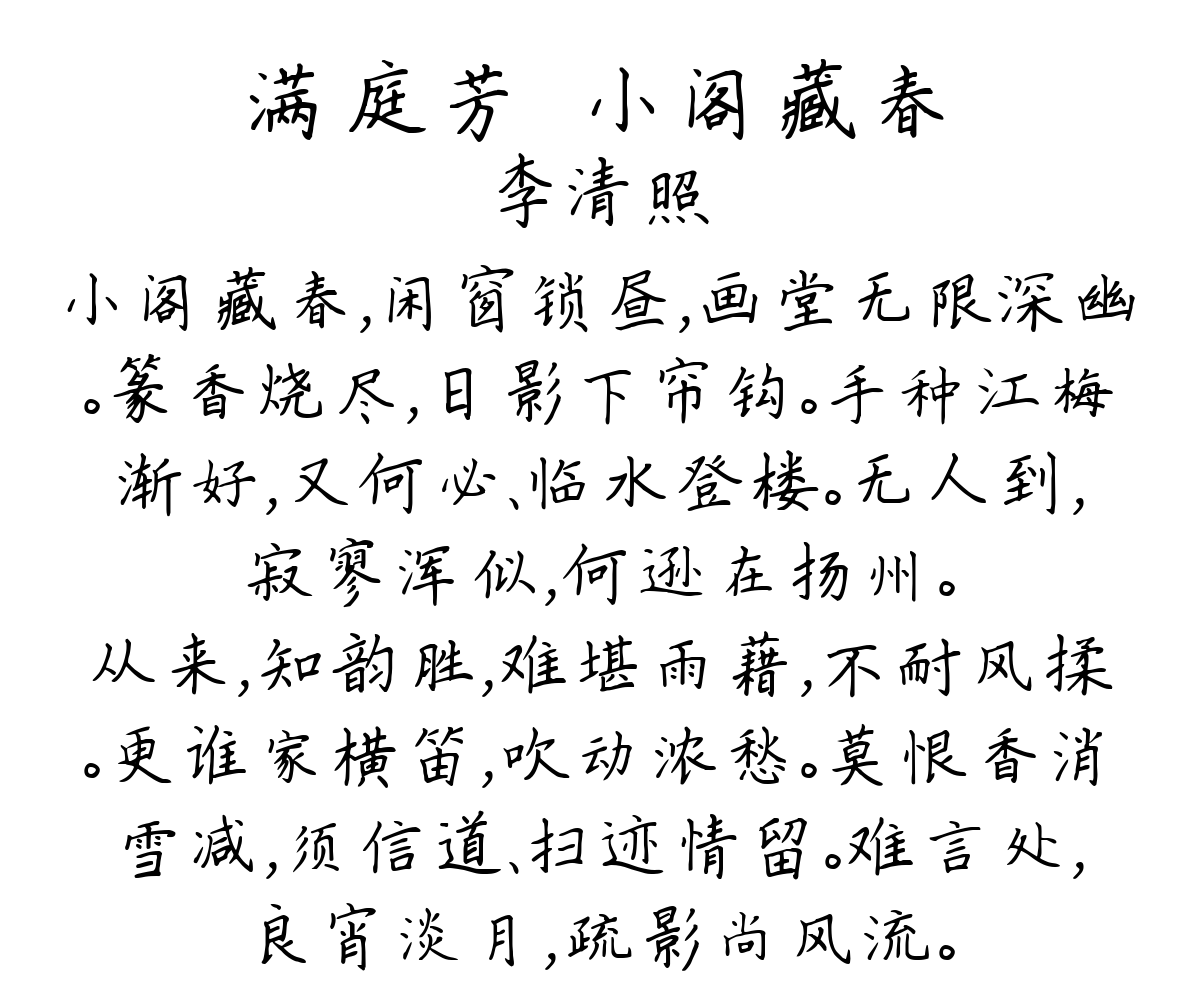 满庭芳 小阁藏春
李清照
小阁藏春,闲窗锁昼,画堂无限深幽
。篆香烧尽,日影下帘钩。手种江梅
渐好,又何必、临水登楼。无人到,
寂寥浑似,何逊在扬州。
从来,知韵胜,难堪雨藉,不耐风揉
。更谁家横笛,吹动浓愁。莫恨香消
雪减,须信道、扫迹情留。难言处,
良宵淡月,疏影尚风流。